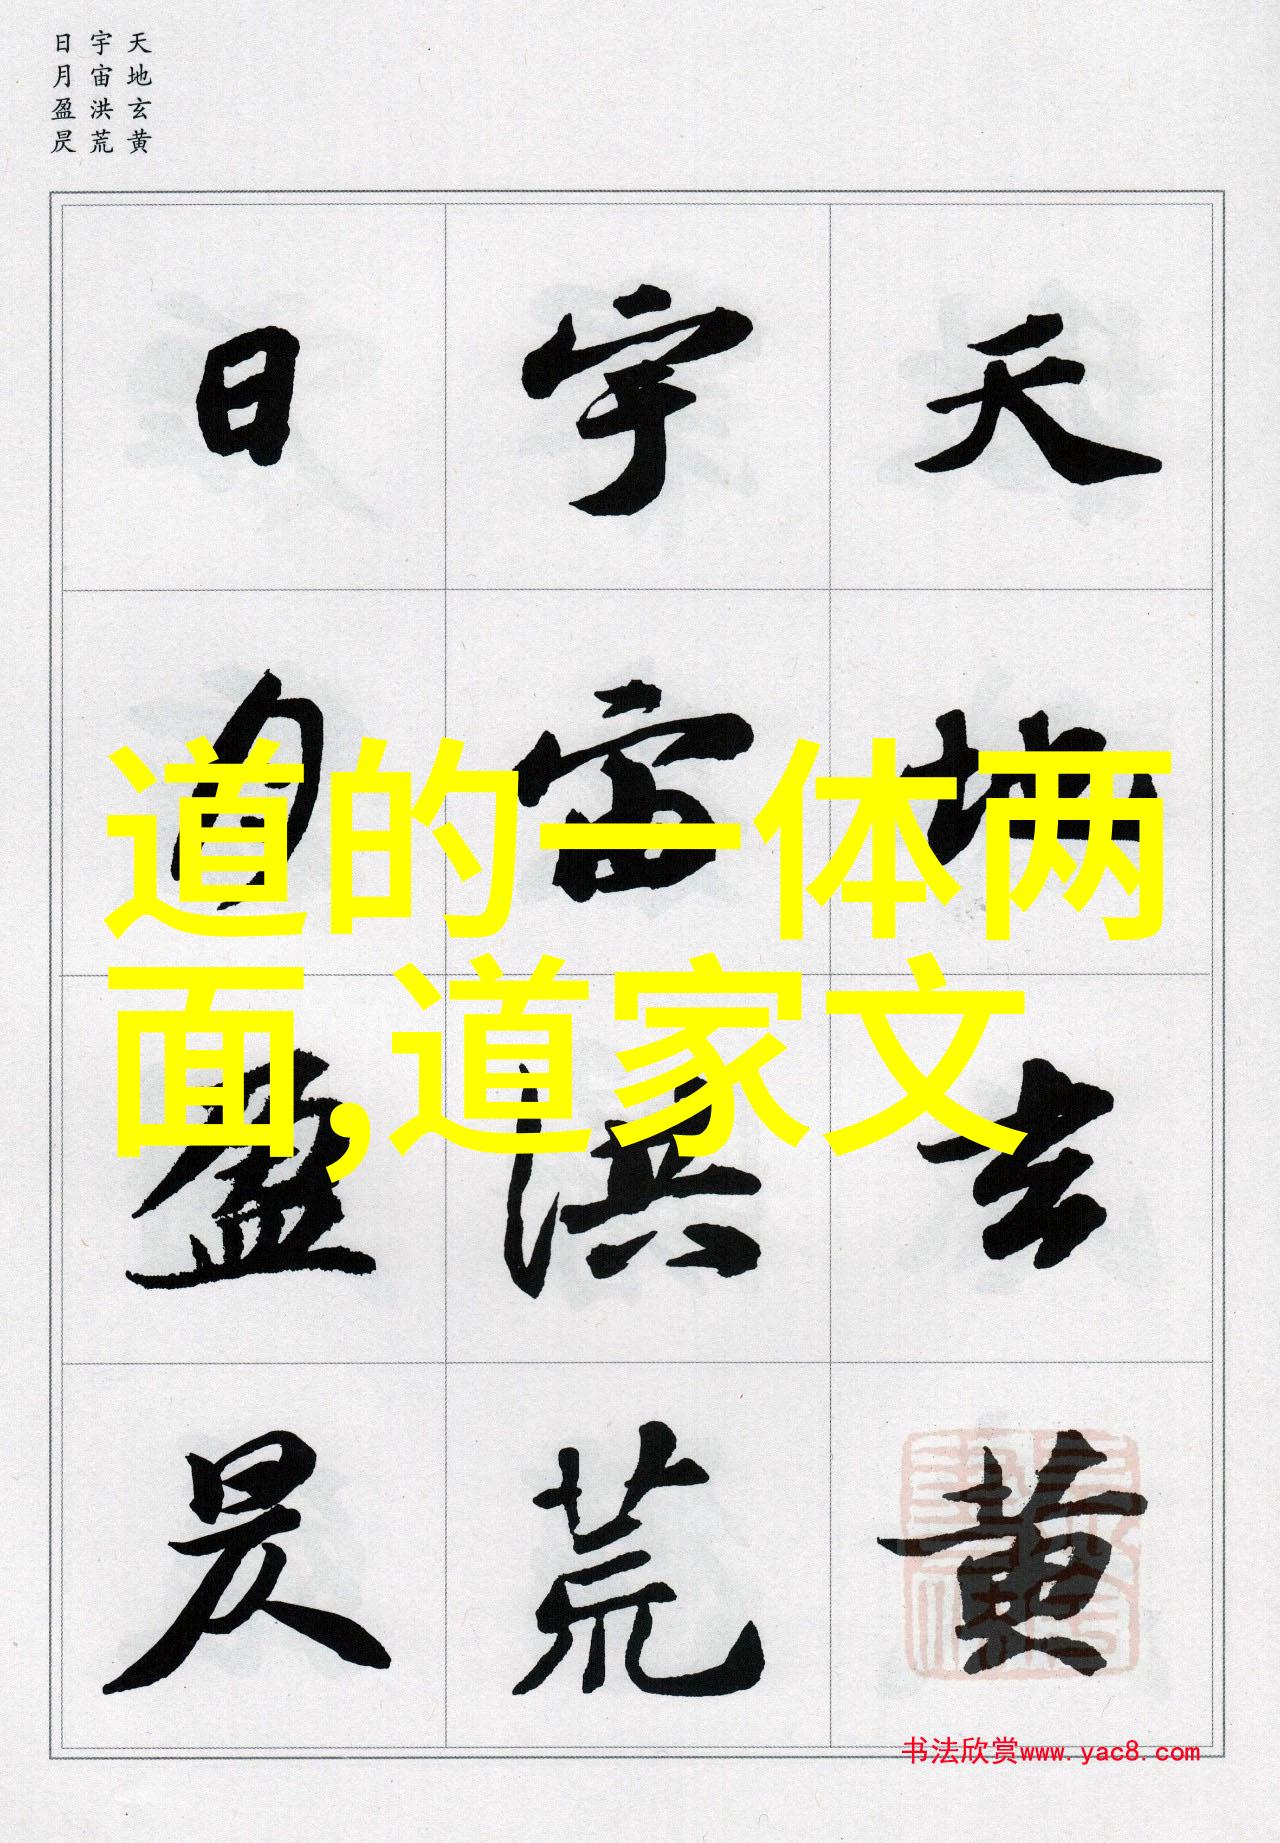 天地玄黄
宇宙洪荒
日月盈昃
天地玄黄
宇宙洪荒
日月盈昃
道的一体两
面,道家文
书法欣赏www.yac8.com